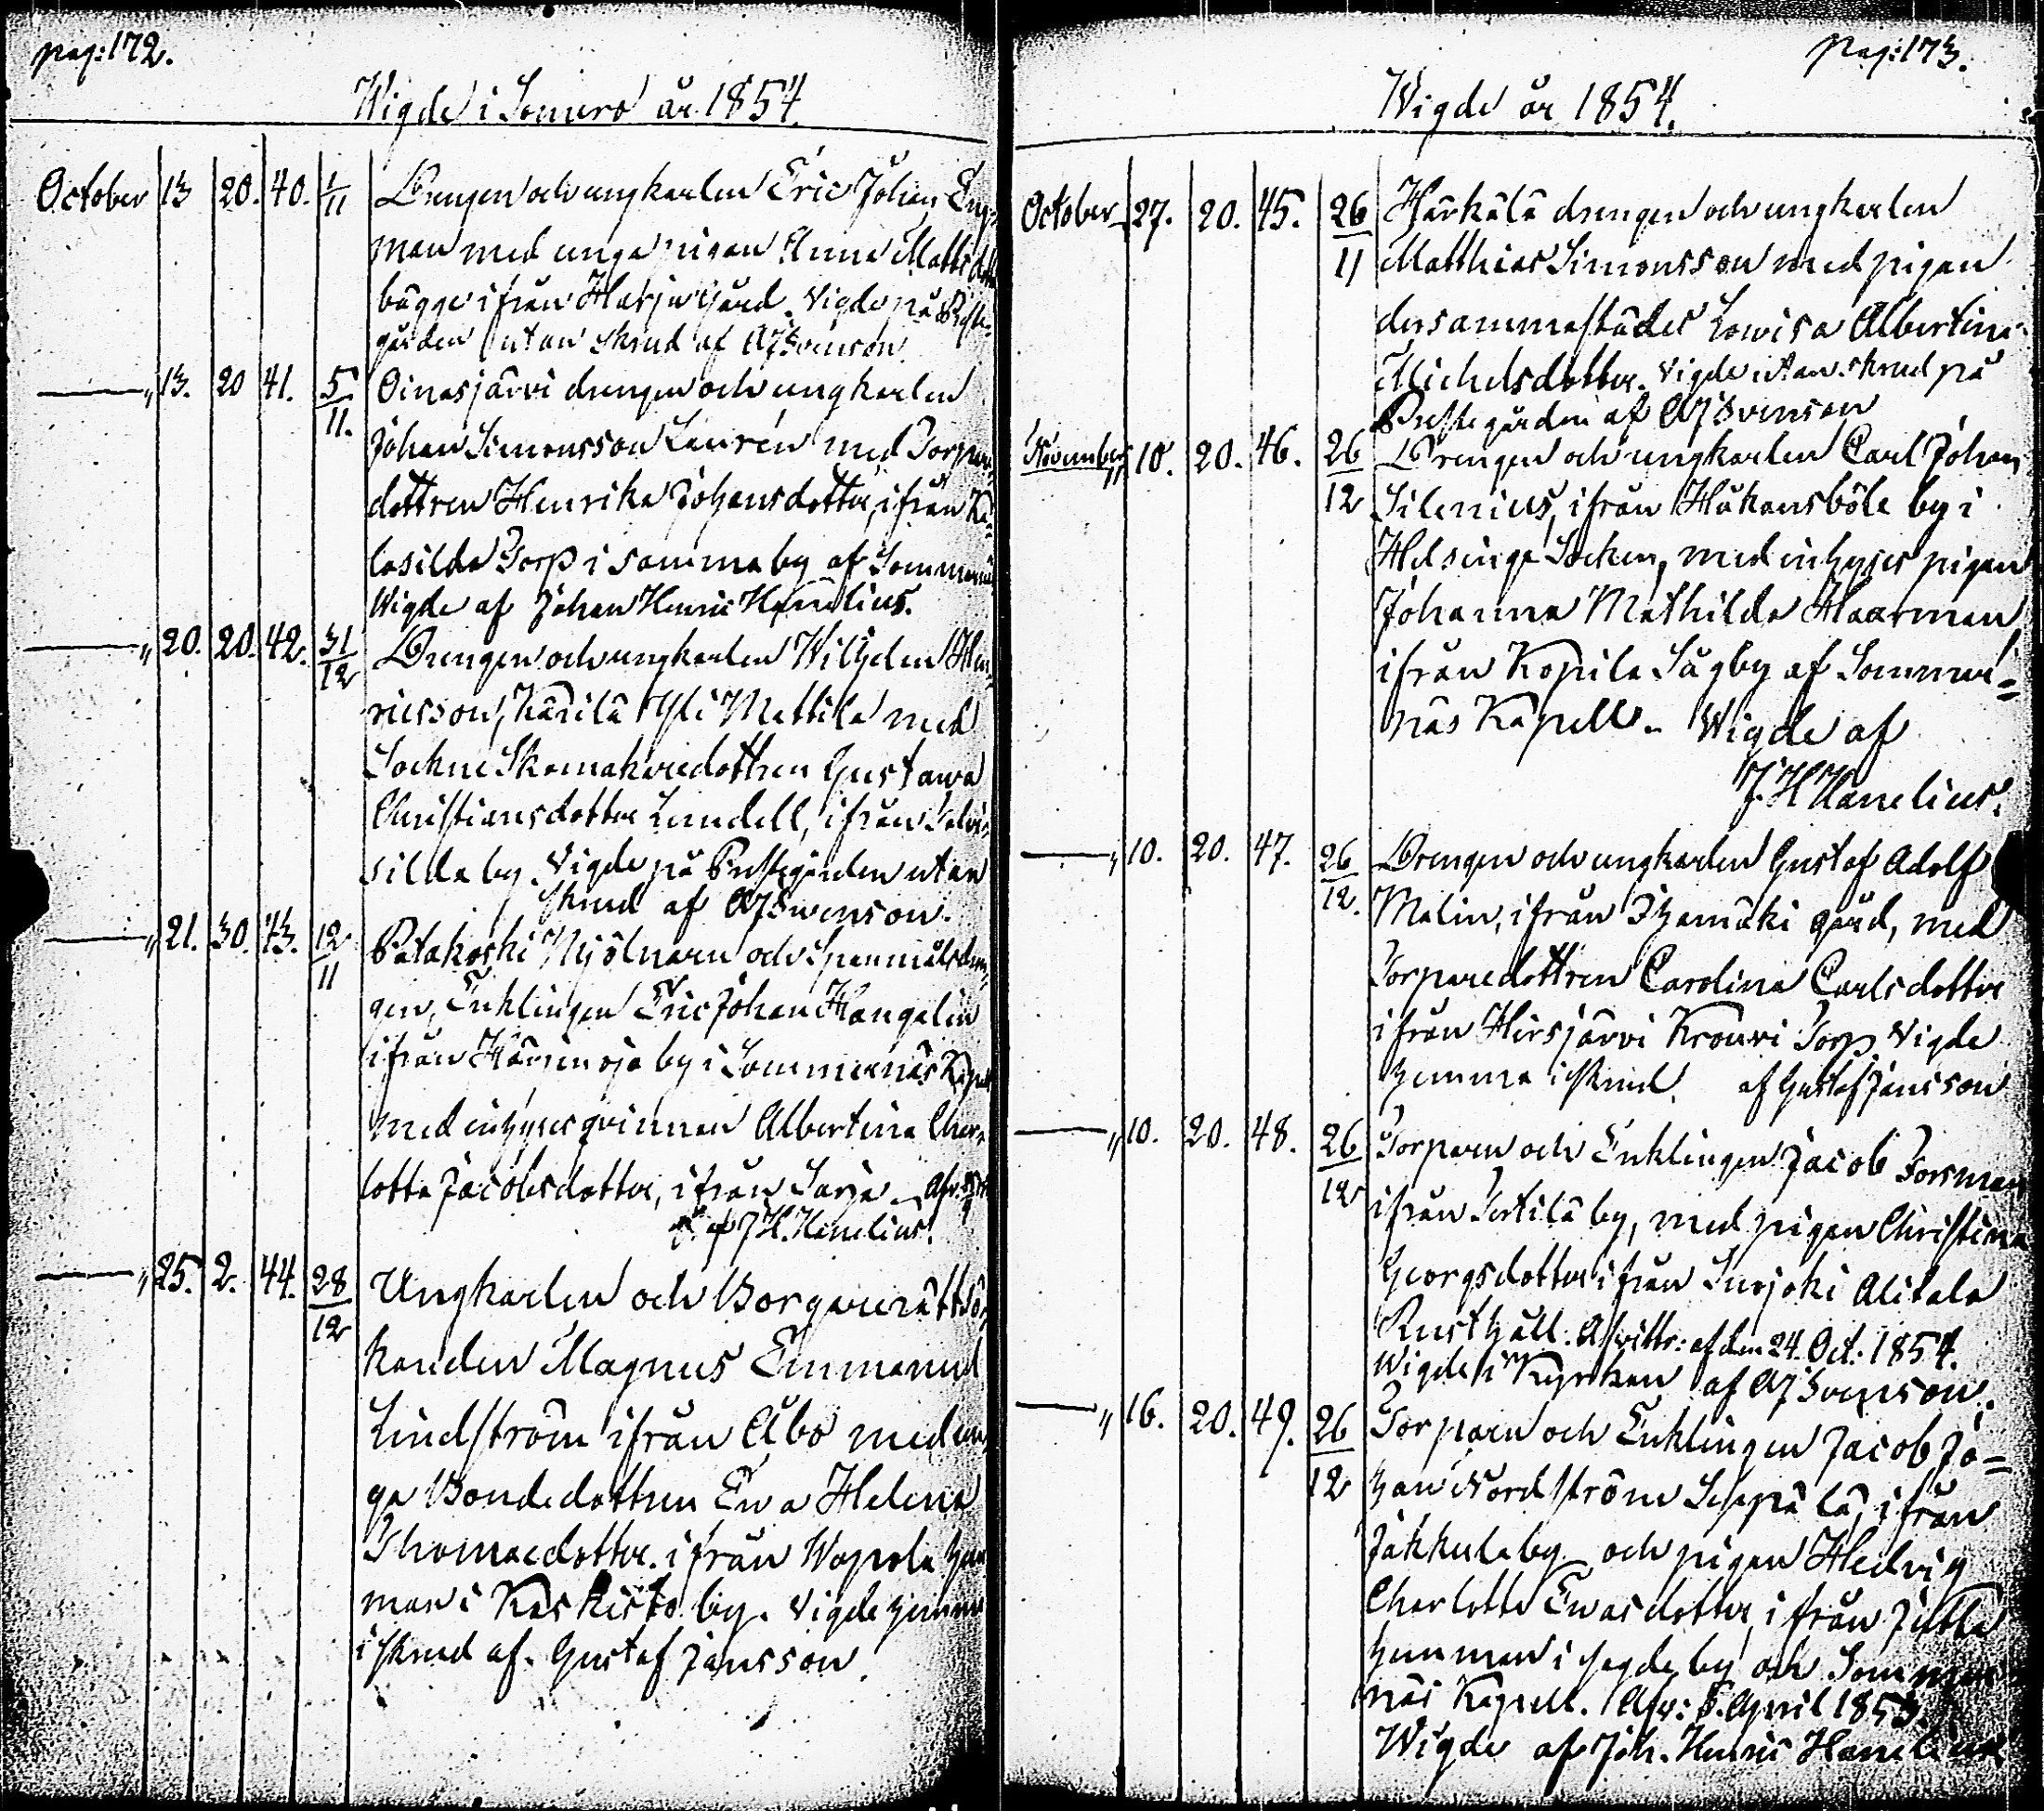 pag: 172.
Wigde i Somero år 1854.
October 13 20. 40. 1/11 Drengen och ungkarlen Eric Johan Eng-
man med unga pigan Anna Mattsdotter
bägge ifrån Harju Gård. Vigde på Preste-
gården utan skrud af AJSvenson.
" 13. 20 41. 5/11. Oinasjärvi drengen och ungkarlen
Johan Simonsson Laurén med Torpare
dottren Henrika Johansdotter, ifrån
Torp i samma by af Sommernäs
Wigde af Johan Henric Hanelius.
" 20. 20. 42. 31/12 Drengen och ungkarlen Wilhelm Hen-
ricsson, Käxilä Yli Mattila med
Sockne Skomakaredottren Gustava
Christiansdotter Lundell, ifrån
silda by. Vigde på Prestegården utan
skrud af AJSvenson.
" 21. 30. 43. 12/11 Patakoski Mjölnaren och Spanmåls
gen, Enklingen Eric Johan Hangelin
ifrån Häntinoja by i Sommernäs Kapell
med inhyses qvinnan Albertina Char-
lotta Jacobsdotter, ifrån Sarja.
af J H. Hanelius.
" 25. 2. 44. 28/12 Ungkarlen och Borgarerättsö-
kanden Magnus Emmanuel
Lindström ifrån Åbo med un-
ga Bondedottren Eva Helena
Thomasdotter. ifrån Wapola hem
man i Kaskisto by. Vigde hemma
i skrud af. Gustaf Jansson.
pag: 173.
Wigde år 1854.
October 27. 20. 45. 26/11 Härkälä drengen och ungkarlen
Matthias Simonsson med pigan
dersammastädes Lowisa Albertina
Michelsdotter. Vigde utan skrud på
Prestegården af AJSvenson
November 10. 20. 46. 26/12 Drengen och ungkarlen Carl Johan
Silenius, ifrån Håkansböle by i
Helsinge Socken, med inhyses pigan
Johanna Mathilda Haarman
ifrån Kopila Sågby af Sommer=
näs Kapell. Wigde af
J. H Hanelius.
" 10. 20. 47. 26/12. Drengen och ungkarlen Gustaf Adolf
Malin, ifrån Ihamäki gård, med
Torparedottren Carolina Carlsdotter
ifrån Hirsjärvi Krouvi Torp Vigde
hemma i skrud. af Gustaf Jansson
" 10. 20. 48. 26/12 Torparen och Enklingen Jacob Forsman
ifrån Tertilä by, med pigan Christina
Georgsdotter ifrån Surjoki Alitalo
Rusthåll. Afvittr: af den 24. Oct: 1854.
Wigde i Kyrkan af AJSvenson.
" 16. 20. 49. 26/12 Torparen och Enklingen Jacob Jo=
han Nordström Seppälä, ifrån
Jakkula by och pigan Hedvig
Charlotta Evasdotter, ifrån Jutila
hemman i by och Sommer
näs Kapell. Afv: 8. April 1853.
Wigde af Joh. Henric Hanelius